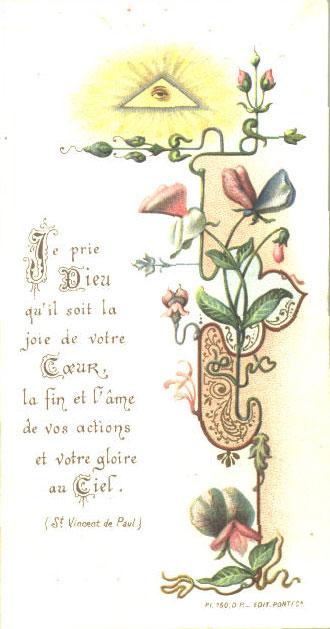 Je prie
Dieu
qu'il soit la
joie de votre
Cœur,
la fin et l'âme
de vos actions
et votre gloire
au Ciel.
(St Vincent de Paul)
Pl. 160, D.P._ EDIT. PONT/CA